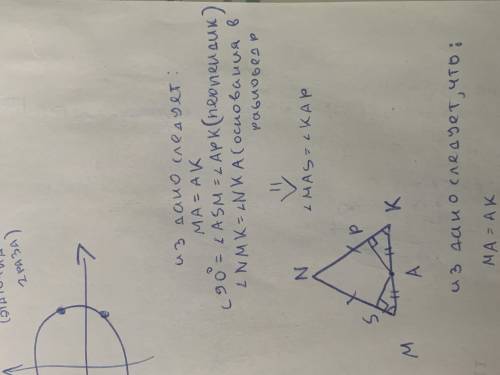 2 РАЗА)
из дано следует:
MA = AK
∠90° = ∠ASM = ∠APK (перпендик)
∠NMK = ∠NKA (основания в
равнобедр
⇓
∠MAS = ∠KAP
N
S
P
M
A
K
из дано следует, что:
MA = AK